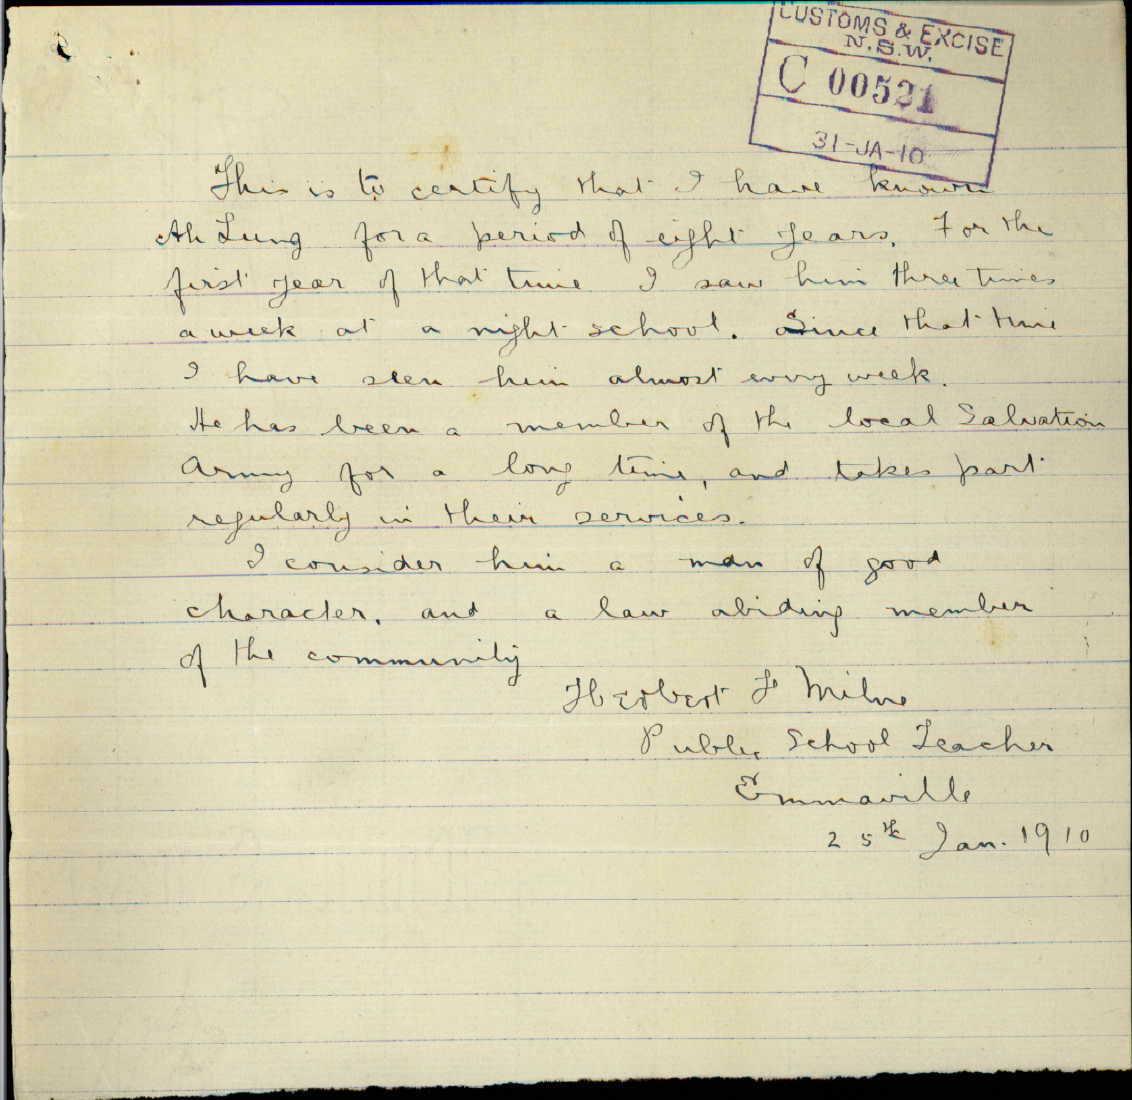 CUSTOMS & EXCISE
N.S.W.
C 00521
31-JA-10
This is to certify that I have known
Ah Lung for a period of eight years. For the
first year of that time I saw him three times
a week at a night school. Since that time
I have seen him almost every week.
He has been a member of the local Salvation
Army for a long time, and takes part
regularly in their services.
I consider him a man of good
character, and a law abiding member
of the community
Herbert F Milne
Public School Teacher
Emmaville
25th Jan. 1910